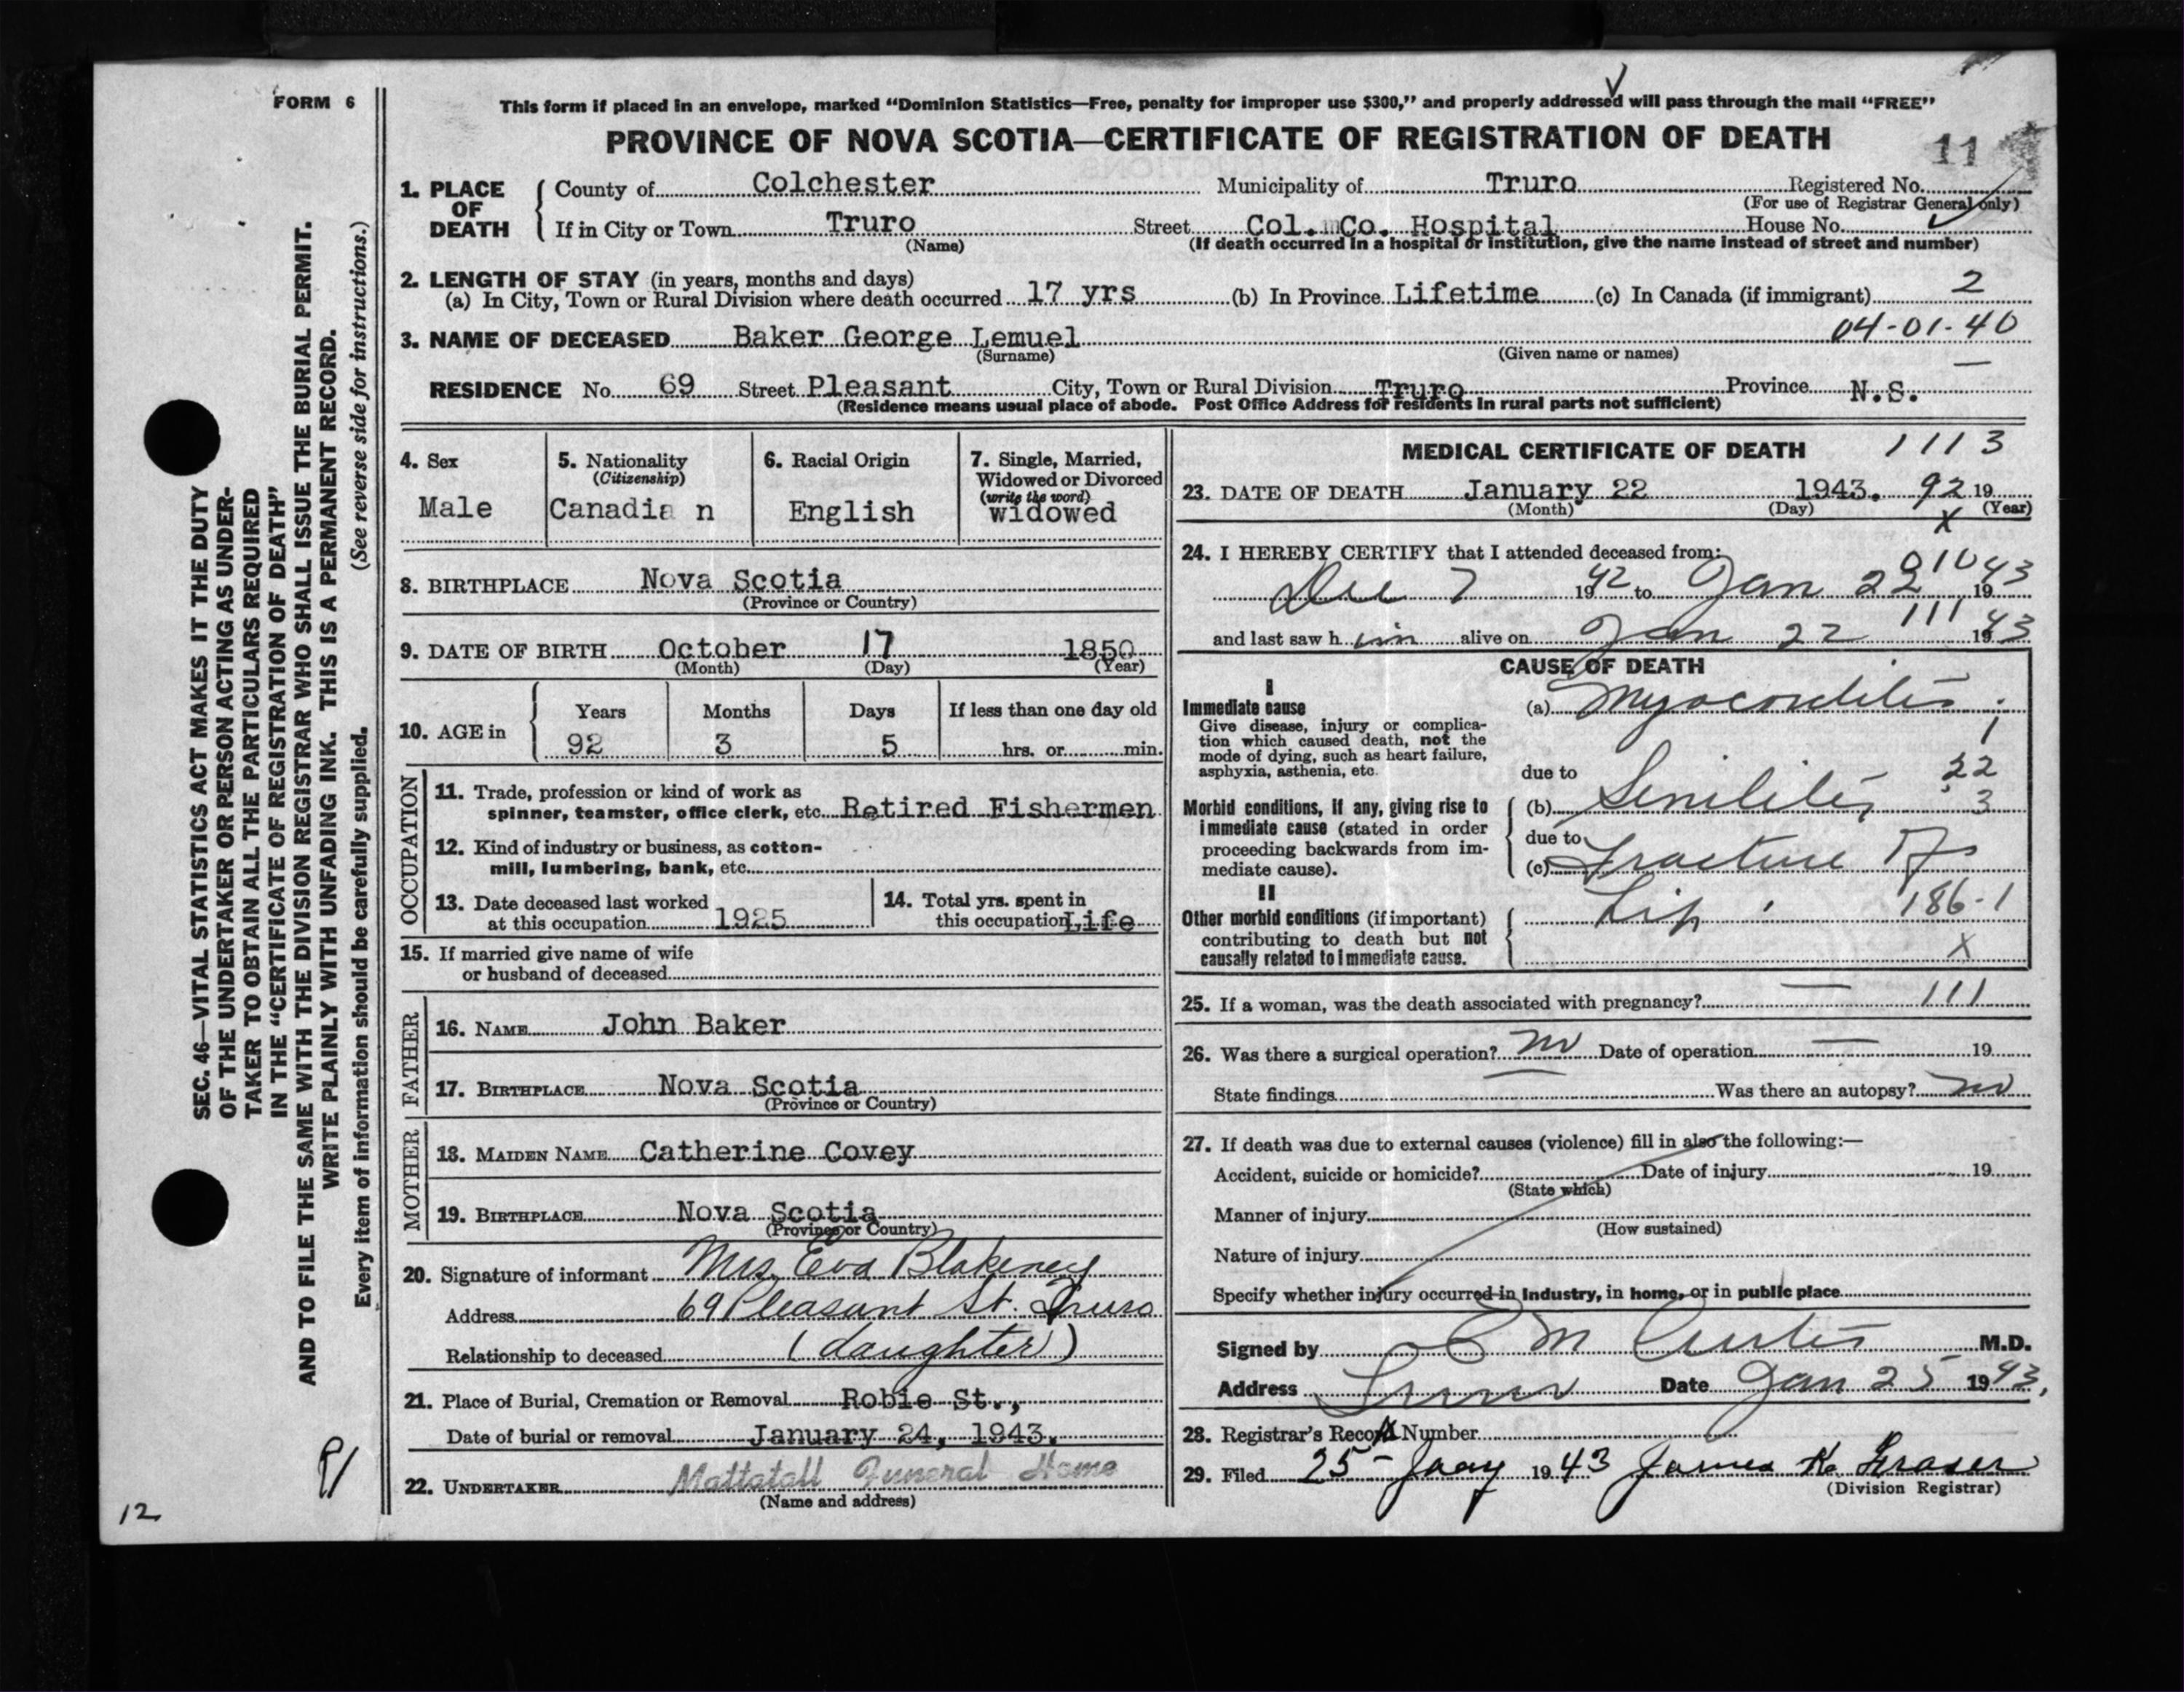 FORM 6
This form if placed in an envelope, marked “Dominion Statistics—Free, penalty for improper use $300,” and properly addressed will pass through the mail “FREE”
PROVINCE OF NOVA SCOTIA—CERTIFICATE OF REGISTRATION OF DEATH
11
1. PLACE OF DEATH
County of Colchester Municipality of Truro Registered No.
(For use of Registrar General only)
If in City or Town Truro Street Col. Co. Hospital House No.
(Name) (If death occurred in a hospital or institution, give the name instead of street and number)
2. LENGTH OF STAY (in years, months and days)
(a) In City, Town or Rural Division where death occurred 17 yrs (b) In Province Lifetime (c) In Canada (if immigrant) 2
04-01-40
3. NAME OF DECEASED Baker George Lemuel
(Surname) (Given name or names)
RESIDENCE No. 69 Street Pleasant City, Town or Rural Division Truro Province N.S.
(Residence means usual place of abode. Post Office Address for residents in rural parts not sufficient)
4. Sex
Male
5. Nationality
(Citizenship)
Canadia n
6. Racial Origin
English
7. Single, Married,
Widowed or Divorced
(write the word)
widowed
8. BIRTHPLACE Nova Scotia
(Province or Country)
9. DATE OF BIRTH October 17 1850
(Month) (Day) (Year)
10. AGE in
Years Months Days If less than one day old
92 3 5 hrs. or min.
OCCUPATION
11. Trade, profession or kind of work as
spinner, teamster, office clerk, etc. Retired Fishermen
12. Kind of industry or business, as cotton-
mill, lumbering, bank, etc.
13. Date deceased last worked
at this occupation 1925
14. Total yrs. spent in
this occupation Life
15. If married give name of wife
or husband of deceased
FATHER
16. NAME John Baker
17. BIRTHPLACE Nova Scotia
(Province or Country)
MOTHER
18. MAIDEN NAME Catherine Covey
19. BIRTHPLACE Nova Scotia
(Province or Country)
20. Signature of informant Mrs. Eva Blakeney
Address 69 Pleasant St. Truro
Relationship to deceased (daughter)
21. Place of Burial, Cremation or Removal Robie St.,
Date of burial or removal January 24, 1943.
22. UNDERTAKER Mattatall Funeral Home
(Name and address)
MEDICAL CERTIFICATE OF DEATH 1113
23. DATE OF DEATH January 22 1943. 92 19
(Month) (Day) (Year)
X
24. I HEREBY CERTIFY that I attended deceased from:
010
Dec 7 1942 to Jan 22 1943
111
and last saw h im alive on Jan 22 1943
CAUSE OF DEATH
I
Immediate cause
Give disease, injury or complica-
tion which caused death, not the
mode of dying, such as heart failure,
asphyxia, asthenia, etc.
(a) Myocarditis
1
due to
22
Morbid conditions, if any, giving rise to
immediate cause (stated in order
proceeding backwards from im-
mediate cause).
(b) Senility 3
due to
(c) Fracture
II
Other morbid conditions (if important)
contributing to death but not
causally related to immediate cause.
Hip 186-1
X
25. If a woman, was the death associated with pregnancy? — 111
26. Was there a surgical operation? no Date of operation — 19
State findings Was there an autopsy? no
27. If death was due to external causes (violence) fill in also the following:—
Accident, suicide or homicide? Date of injury 19
(State which)
Manner of injury
(How sustained)
Nature of injury
Specify whether injury occurred in industry, in home, or in public place
Signed by E M Curtis M.D.
Address Truro Date Jan 25 1943,
28. Registrar's Record Number
29. Filed 25- Jany 1943 James K. Fraser
(Division Registrar)
SEC. 46—VITAL STATISTICS ACT MAKES IT THE DUTY
OF THE UNDERTAKER OR PERSON ACTING AS UNDER-
TAKER TO OBTAIN ALL THE PARTICULARS REQUIRED
IN THE “CERTIFICATE OF REGISTRATION OF DEATH”
AND TO FILE THE SAME WITH THE DIVISION REGISTRAR WHO SHALL ISSUE THE BURIAL PERMIT.
WRITE PLAINLY WITH UNFADING INK. THIS IS A PERMANENT RECORD.
Every item of information should be carefully supplied. (See reverse side for instructions.)
12